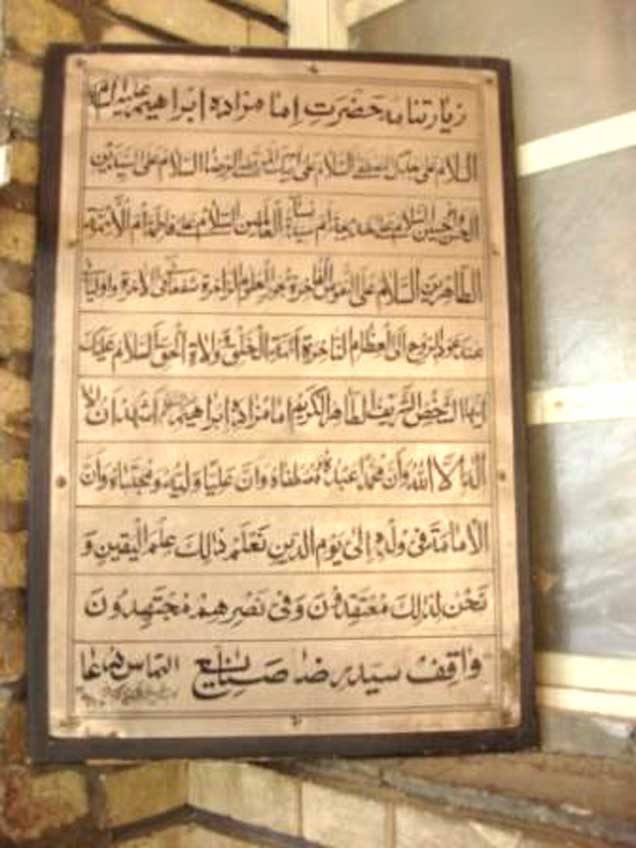 زیارتنامه حضرت امامزاده ابراهیم علیه السلام
السلام علی جدک المصطفی السلام علی ابیک المرتضی الرضا السلام علی السیدین
الحسن و الحسین السلام علی خدیجة ام سیدة نساء العالمین السلام علی فاطمة ام الائمة
الطاهرین السلام علی النفوس الفاخرة بحور العلوم الزاخرة شفعائی فی الاخرة و اولیائی
عند عود الروح الی العظام الناخرة ائمة الخلق و ولاة الحق السلام علیک
ایها الشخص الشریف الطاهر الکریم امامزاده ابراهیم اشهد ان لا
اله الا الله و ان محمدا عبده و مصطفاه و ان علیا ولیه و مجتباه و ان
الامامة فی ولده الی یوم الدین نعلم ذالک علم الیقین و
نحن لذلک معتقدون و فی نصرهم مجتهدون
واقف سید رضا صنایع التماس دعا